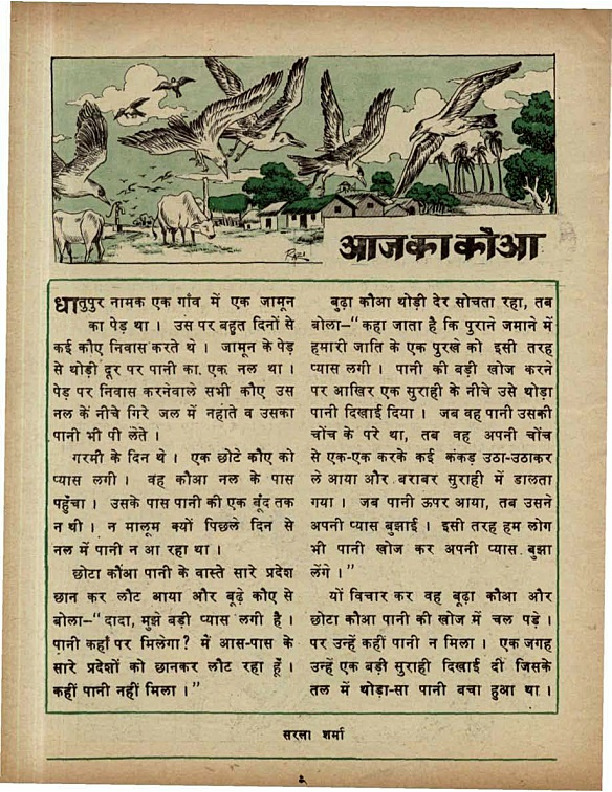 आज का कौआ
धातुपुर नामक एक गाँव में एक जामून
का पेड़ था । उस पर बहुत दिनों से
कई कौए निवास करते थे । जामून के पेड़
से थोड़ी दूर पर पानी का एक नल था ।
पेड़ पर निवास करनेवाले सभी कौए उस
नल के नीचे गिरे जल में नहाते व उसका
पानी भी पी लेते ।
गरमी के दिन थे । एक छोटे कौए को
प्यास लगी । वह कौआ नल के पास
पहुँचा । उसके पास पानी की एक बूंद तक
न थी । न मालूम क्यों पिछले दिन से
नल में पानी न आ रहा था ।
छोटा कौआ पानी के वास्ते सारे प्रदेश
छान कर लौट आया और बूढ़े कौए से
बोला–“ दादा, मुझे बड़ी प्यास लगी है ।
पानी कहाँ पर मिलेगा ? मैं आस-पास के
सारे प्रदेशों को छानकर लौट रहा हूँ ।
कहीं पानी नहीं मिला ।”
बूढ़ा कौआ थोड़ी देर सोचता रहा, तब
बोला–“ कहा जाता है कि पुराने जमाने में
हमारी जाति के एक पुरखे को इसी तरह
प्यास लगी । पानी की बड़ी खोज करने
पर आखिर एक सुराही के नीचे उसे थोड़ा
पानी दिखाई दिया । जब वह पानी उसकी
चोंच के परे था, तब वह अपनी चोंच
से एक-एक करके कई कंकड़ उठा-उठाकर
ले आया और बराबर सुराही में डालता
गया । जब पानी ऊपर आया, तब उसने
अपनी प्यास बुझाई । इसी तरह हम लोग
भी पानी खोज कर अपनी प्यास बुझा
लेंगे ।”
यों विचार कर वह बूढ़ा कौआ और
छोटा कौआ पानी की खोज में चल पड़े ।
पर उन्हें कहीं पानी न मिला । एक जगह
उन्हें एक बड़ी सुराही दिखाई दी जिसके
तल में थोड़ा-सा पानी बचा हुआ था ।
सरला शर्मा